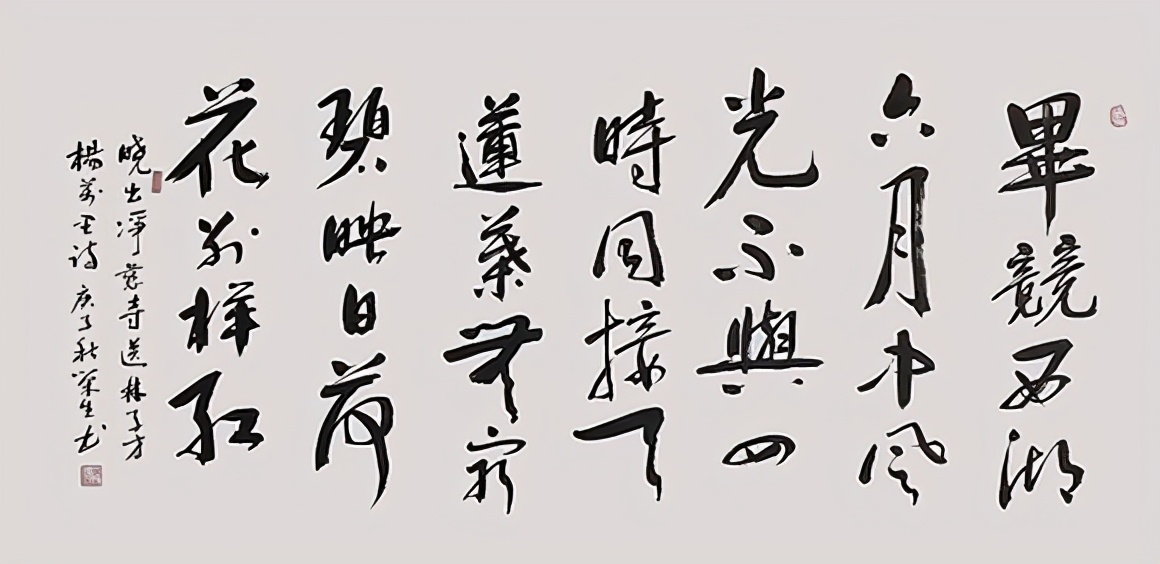 畢競西湖
六月中風
光不與四
時同接天
蓮葉無窮
碧映日荷
花别樣紅
曉出淨慈寺送林子方
楊萬里詩庚子秋榮生书